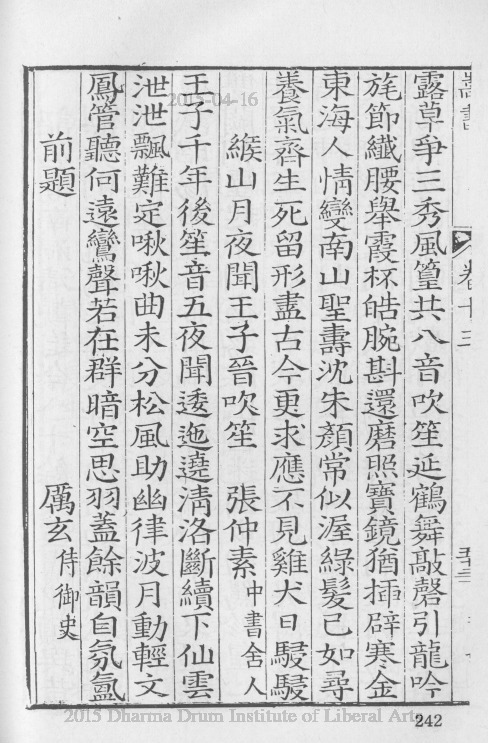 嵩書
卷十三
露草爭三秀風篁共八音吹笙延鶴舞敲磬引龍吟
旄節纖腰舉霞杯皓腕斟還磨照寶鏡猶揷辟寒金
東海人情變南山聖壽沈朱顏常似渥綠髮已如尋
養氣齊生死留形盡古今更求應不見雞犬日駸駸
緱山月夜聞王子晉吹笙 張仲素中書舍人
王子千年後笙音五夜聞逶迤遶淸洛斷續下仙雲
泄泄飄難定啾啾曲未分松風助幽律波月動輕文
鳳管聽何遠鸞聲若在群暗空思羽蓋餘韻自氛氳
前題 厲玄侍御史
2015-04-16
2015 Dharma Drum Institute of Liberal Arts
242